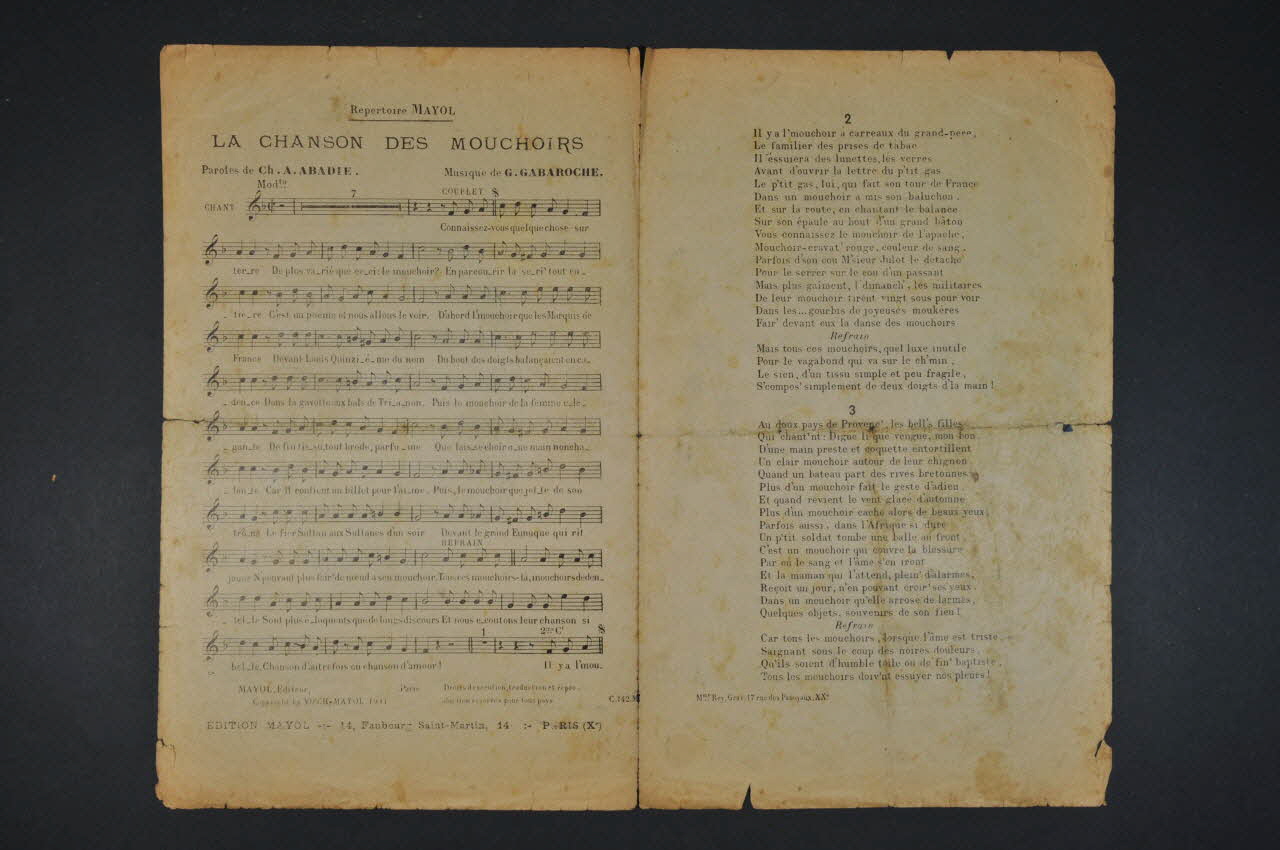 Répertoire MAYOL
LA CHANSON DES MOUCHOIRS
Paroles de Ch. A. ABADIE.
Musique de G. GABAROCHE.
Modto
7
COUPLET
CHANT
Connaissez-vous quelque chose sur
ter_re De plus va_rié que ce_ci: le mouchoir? En parcou_rir la se_ri' tout en_
_tiè_re C'est un poème et nous allons le voir. D'abord l'mouchoir que les Marquis de
France Devant Louis Quinzi_è_me du nom Du bout des doigts balançaient en ca_
_den_ce Dans la gavotte aux bals de Tri_a_non. Puis le mouchoir de la femme é_lé_
gan_te De fin tis_su, tout brodé, parfu_mé Que lais_se choir u_ne main noncha_
_lan_te Car il contient un billet pour l'ai_mé. Puis, le mouchoir que jet_te de son
trô_ne Le fier Sultan aux Sultanes d'un soir Devant le grand Eunuque qui rit
REFRAIN
jaune N'pouvant plus fair' de nœud à son mouchoir. Tous ces mouchoirs-là, mouchoirs de den_
tel_le Sont plus é_loquents que de longs discours Et nous é_coutons leur chanson si
1
2me Ct
bel_le, Chanson d'autrefois ou chanson d'amour!
Il y a l'mou_
MAYOL, Editeur, Paris
Copyright by
Droits d'exécution, traduction et repro_
_duction réservés pour tous pays
C.142.M
EDITION MAYOL -:- 14, Faubourg Saint-Martin, 14 -:- PARIS (Xe)
2
Il y a l'mouchoir à carreaux du grand-père,
Le familier des prises de tabac
Il essuiera des lunettes, les verres
Avant d'ouvrir la lettre du p'tit gas
Le p'tit gas, lui, qui fait son tour de France
Dans un mouchoir a mis son baluchon.
Et sur la route, en chantant le balance
Sur son épaule au bout d'un grand bâton
Vous connaissez le mouchoir de l'apache,
Mouchoir-cravat' rouge, couleur de sang.
Parfois d'son cou M'sieur Julot le détache
Pour le serrer sur le cou d'un passant
Mais plus gaiment, l'dimanch', les militaires
De leur mouchoir tirent vingt sous pour voir
Dans les... gourbis de joyeuses moukères
Fair' devant eux la danse des mouchoirs
Refrain
Mais tous ces mouchoirs, quel luxe inutile
Pour le vagabond qui va sur le ch'min,
Le sien, d'un tissu simple et peu fragile,
S'compos' simplement de deux doigts d'la main!
3
Au doux pays de Provenc', les bell's filles
Qui chant'nt: Digue li que vengue, mon bon
D'une main preste et coquette entortillent
Un clair mouchoir autour de leur chignon
Quand un bateau part des rives bretonnes
Plus d'un mouchoir fait le geste d'adieu.
Et quand revient le vent glacé d'automne
Plus d'un mouchoir cache alors de beaux yeux,
Parfois aussi, dans l'Afrique si dure
Un p'tit soldat tombe une balle au front
C'est un mouchoir qui couvre la blessure
Par où le sang et l'âme s'en iront
Et la maman qui l'attend, plein' d'alarmes,
Reçoit un jour, n'en pouvant croir' ses yeux,
Dans un mouchoir qu'elle arrose de larmes,
Quelques objets, souvenirs de son fieu!
Refrain
Car tous les mouchoirs, lorsque l'âme est triste
Saignant sous le coup des noires douleurs,
Qu'ils soient d'humble toile ou de fin' baptiste,
Tous les mouchoirs doiv'nt essuyer nos pleurs!
Mme Rey, Grav. 17 rue des Panoyaux, XXe